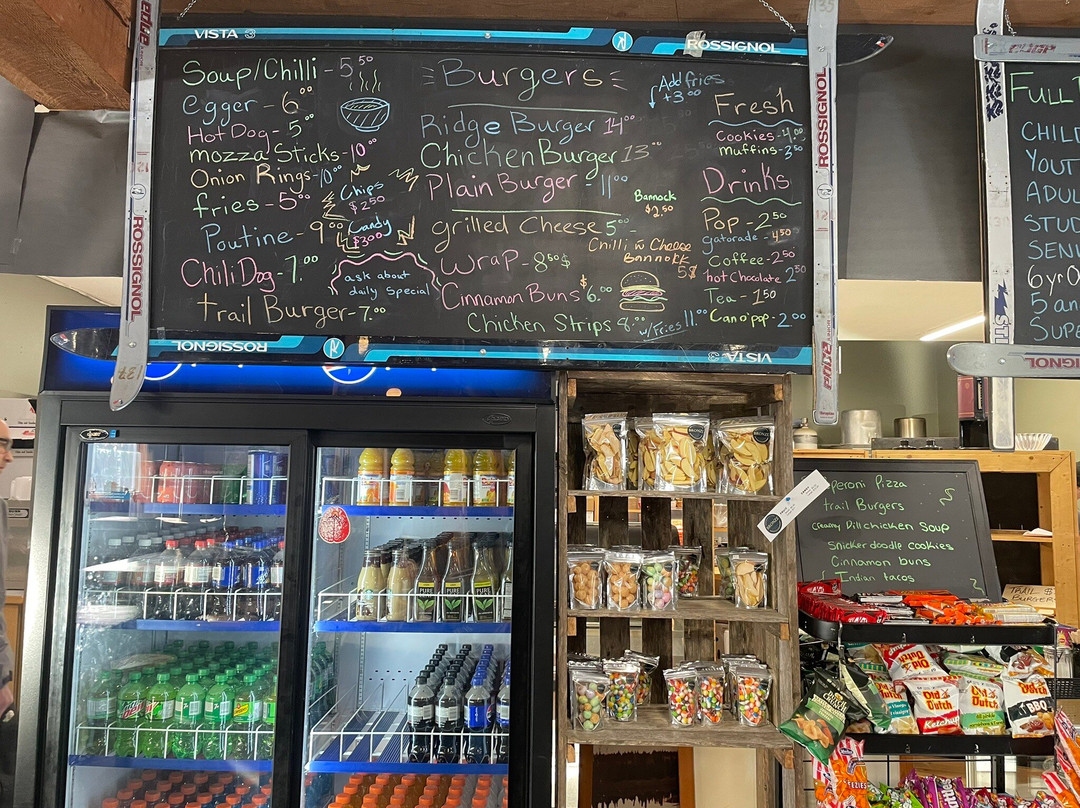 VISTA
ROSSIGNOL
Soup/Chilli - 5 50
egger - 6 00
Hot Dog - 5 00
mozza Sticks - 10 00
Onion Rings - 10 00
fries - 5 00
Poutine - 9 00
Chili Dog - 7 00
trail Burger - 7 00
Chips
$2 50
Candy
$3 00
ask about
daily Special
Burgers
Add fries
+3 00
Ridge Burger 14 00
Chicken Burger 13 00
Plain Burger - 11 00
Bannock
$2 50
grilled Cheese 5 00
Chilli n Cheese
Bannock
5$
Wrap - 8 50 $
Cinnamon Buns $6 00
Chicken Strips 8 00 w/Fries 11 00
Fresh
Cookies - 4 00
muffins - 3 50
Drinks
Pop - 2 50
gatorade - 4 50
Coffee - 2 50
hot Chocolate 2 50
Tea - 1 50
Can o' pop - 2 00
ROSSIGNOL
VISTA
ROSSIGNOL
ROSSIGNOL
137
FULL
CHIL
YOUT
ADUL
STUD
SEN
6yr
5 an
SUP
peroni Pizza
trail Burgers
Creamy Dill chicken Soup
Snickerdoodle cookies
Cinnamon buns
Indian tacos
TRAIL
BURGER
PURE
PURE
PURE
Old Dutch
Old Dutch
Ketchup
Old Dutch
Old Dutch
BBQ